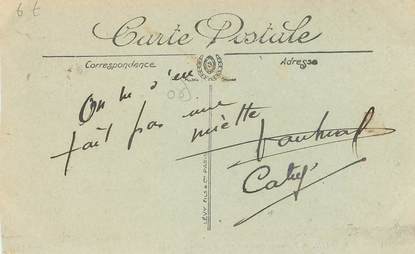 6 €
Carte Postale
Correspondance
Adresse
On ne s'en
fait pas une
miette
LÉVY FILS & Cie PARIS